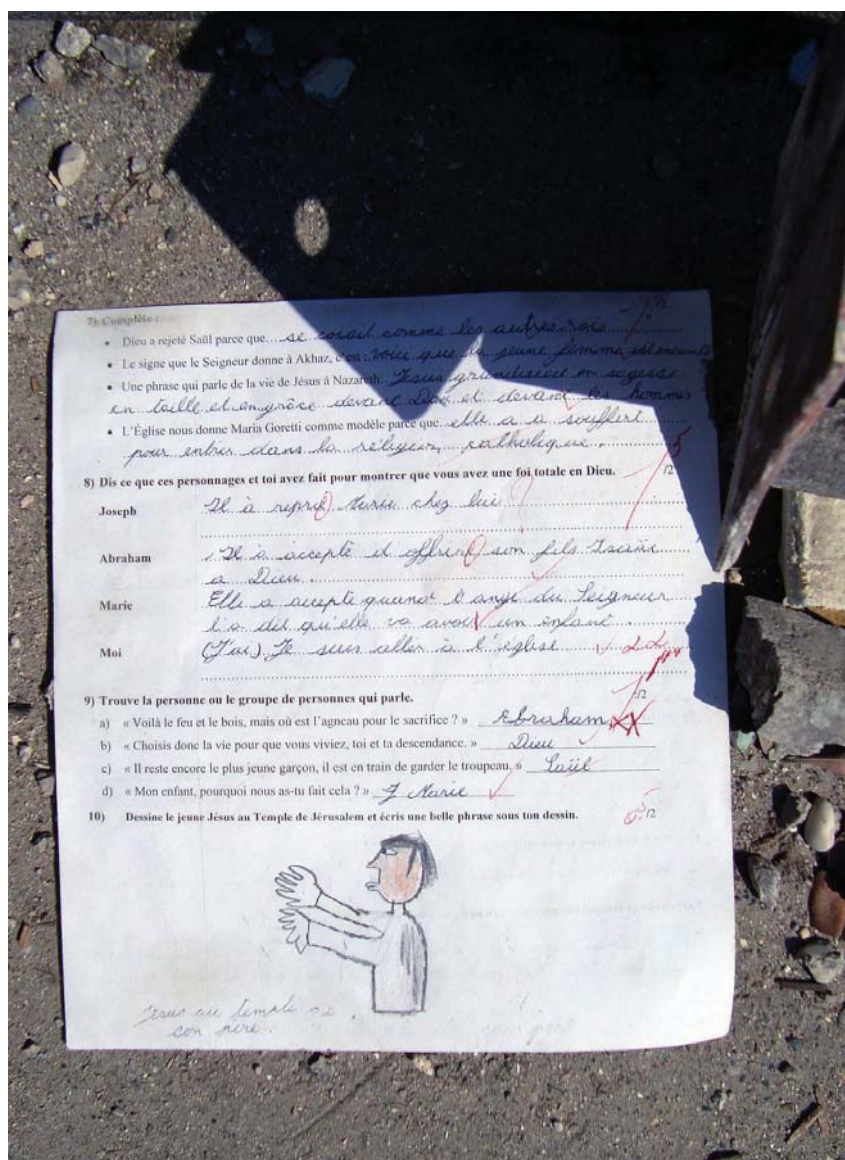 7) Complète :
• Dieu a rejeté Saül parce que... se corait comme les autres rois
• Le signe que le Seigneur donne à Akhaz, c'est : voici que la jeune femme est enceinte
• Une phrase qui parle de la vie de Jésus à Nazareth. Jesus grandissait en sagesse
en taille et en grâce devant Dieu et devant les hommes
• L'Église nous donne Maria Goretti comme modèle parce que... elle a a souffert
pour entrer dans la réligeur catholique.
/2
8) Dis ce que ces personnages et toi avez fait pour montrer que vous avez une foi totale en Dieu.
Joseph Il à repris Marie chez lui
Abraham Il à accepté d'offrire son fils
a Dieu.
Marie Elle a accepte quand l'ange du Seigneur
l'a dit qu'elle va avoir un enfant.
Moi (J'ai) Je suis aller à l'église
/2
9) Trouve la personne ou le groupe de personnes qui parle.
a) « Voilà le feu et le bois, mais où est l'agneau pour le sacrifice ? » Abraham
b) « Choisis donc la vie pour que vous viviez, toi et ta descendance. » Dieu
c) « Il reste encore le plus jeune garçon, il est en train de garder le troupeau. » Saül
d) « Mon enfant, pourquoi nous as-tu fait cela ? » Marie
10) Dessine le jeune Jésus au Temple de Jérusalem et écris une belle phrase sous ton dessin. /2
Jesus au temple de
son père.